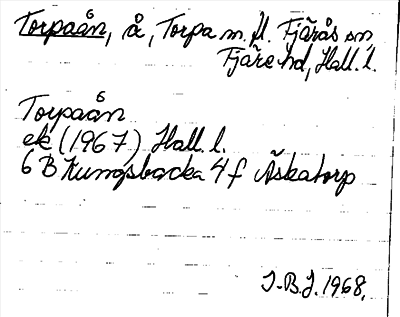 Torpaån, å, Torpa m. fl. Fjärås sn,
Fjäre hd, Hall. l.
Torpaån
ek (1967) Hall. l.
6 B Kungsbacka 4 f Äskatorp
J-B.J. 1968.